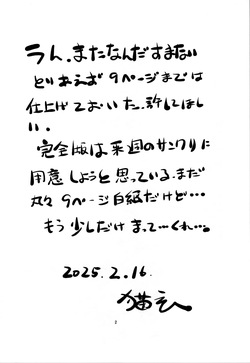 うん、またなんだすまない
とりあえず9ページまでは
仕上げておいた、許してほし
い。
完全版は来週のサンクリに
用意しようと思っている、まだ
丸々9ページ白紙だけど…
もう少しだけまって…くれ…。
2025.2.16